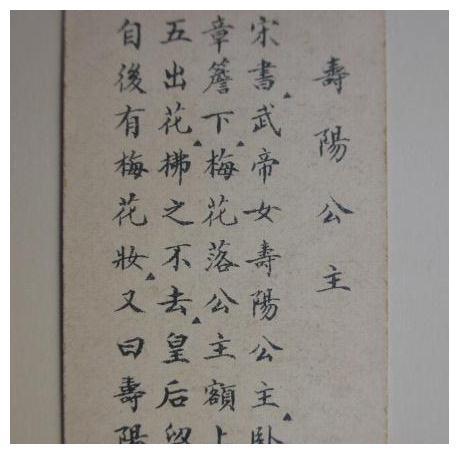 壽陽公主
宋書武帝女壽陽公主卧
章簷下梅花落公主額上
五出花拂之不去皇后留
自後有梅花妝又曰壽陽